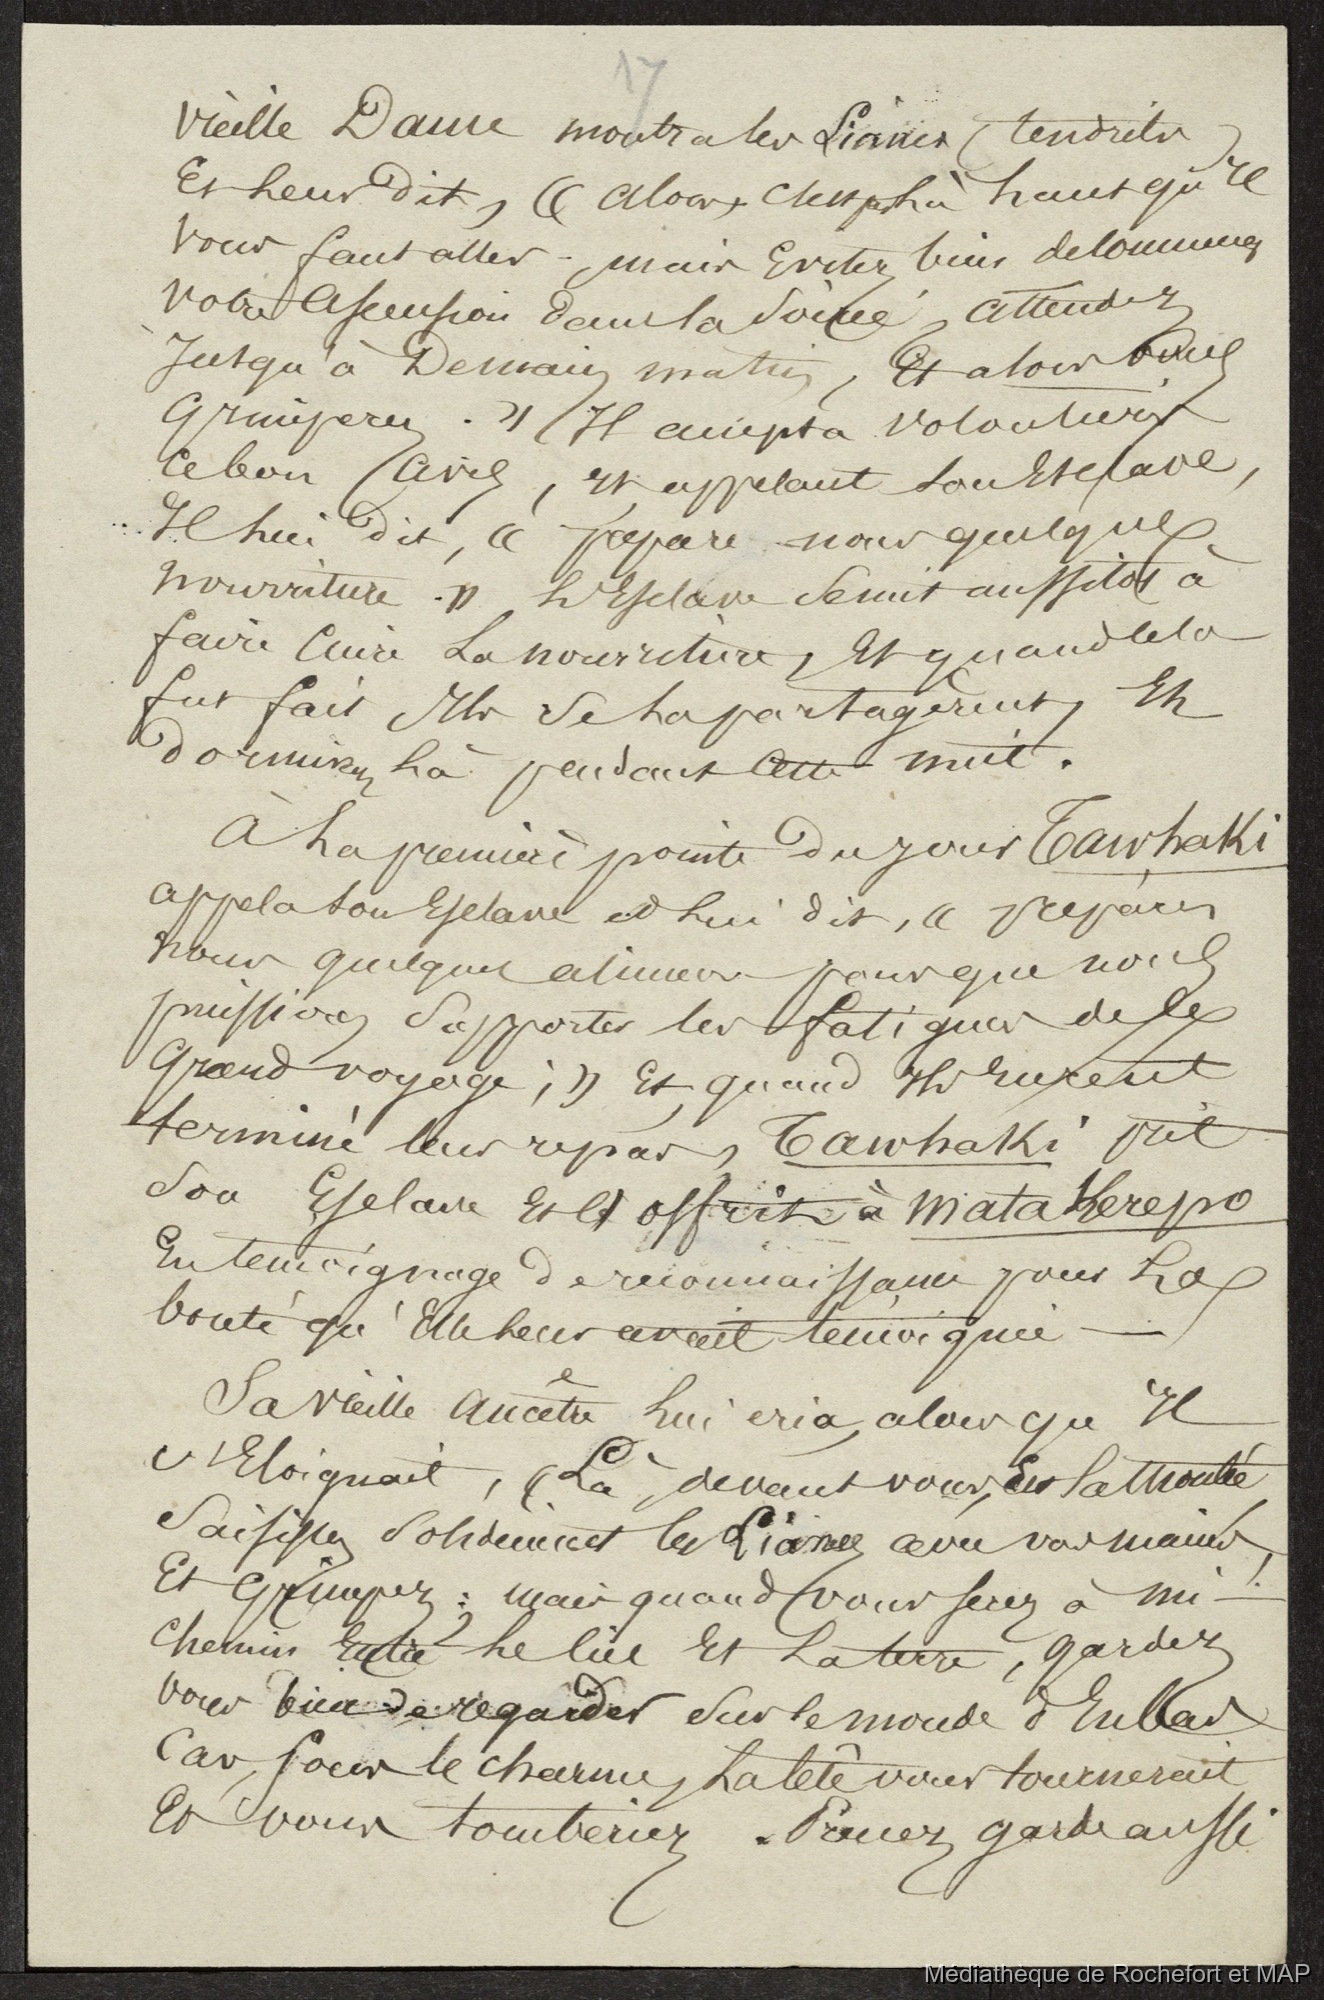 17
vieille Dame montra les Lianes (tendrils)
Et leur dit, « alors c'est par là haut qu'Il
vous faut aller - mais Evitez bien de commencer
votre Ascension dans la soirée, attendez
Jusqu'à Demain matin, Et alors vous
Grimperez. » Il accepta volontiers
ce bon avis, et appelant son Esclave,
Il lui dit, « prepare nous quelque
nourriture. » L'Esclave se mit aussitôt à
faire Cuire La nourriture, Et quand cela
fut fait Ils se la partagèrent, Et
dormirent là pendant cette nuit.
À la première pointe du jour Tawhaki
appela son Esclave et lui dit, « prepares
nous quelques aliments pour que nous
puissions supporter les fatigues de ce
Grand voyage; » Et quand Ils Eurent
terminé leur repas, Tawhaki prit
Son Esclave Et l'offrit à Mata Kerepo
En temoignage de reconnaissance pour La
bonté qu'Elle leur avait témoignée —
Sa vieille Ancêtre lui cria, alors qu'Il
s'Eloignait, « Là, devant vous, Est la montée
Saisissez solidement les Lianes avec vos mains,
Et Grimpez; mais quand vous serez à mi-
chemin Entre le ciel Et La terre, gardez
vous bien de regarder sur le monde d'En bas
Car, sous le charme, La tête vous tournerait
Et vous tomberiez. Prenez garde aussi
Médiathèque de Rochefort et MAP